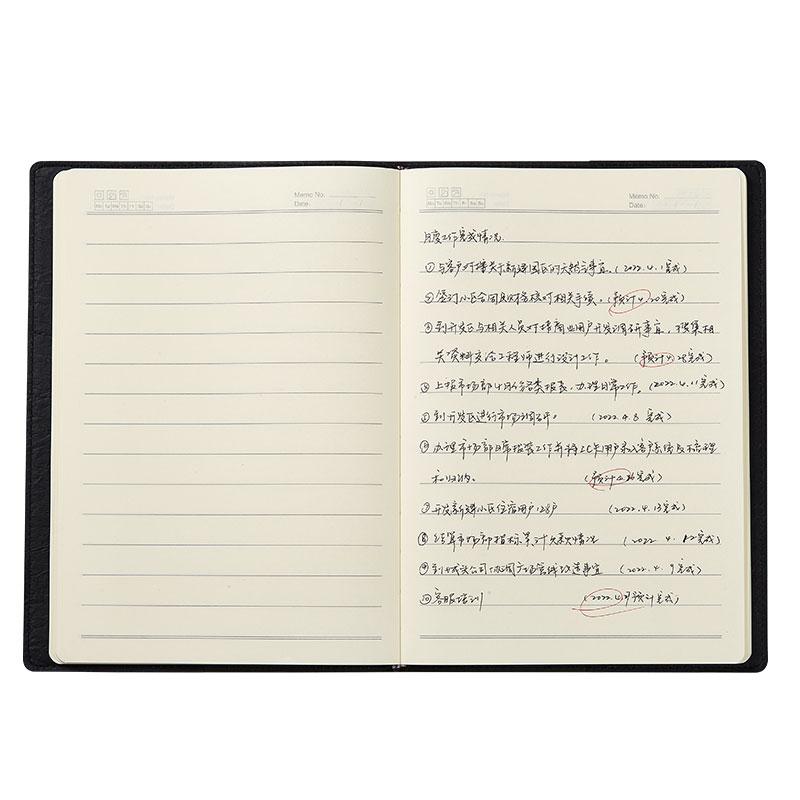 Memo No.
Date:
Mo Tu We Th Fr Sa Su
Memo No.
Date:
Mo Tu We Th Fr Sa Su
月度工作完成情况
①与客户对接关于新建园区的天然气事宜。(2022.4.1完成)
②签订小区合同及财务核对相关手续。(预计4.20完成)
③到开发区与相关人员对接商业用户开发调研事宜,搜集相
关资料交给工程师进行设计工作。(预计4.28完成)
④上报市场部4月份各类报表,办理日常工作。(2022.4.11完成)
⑤到开发区进行市场调研。(2022.4.8完成)
⑥办理市场部日常报装工作并将IC卡用户录入客户系统及梳理
和归纳。(预计4.26完成)
⑦开发新建小区住宿用户128户 (2022.4.13完成)
⑧结算市场部指标累计欠款情况 (2022 4. 完成)
⑨到城投公司协调广场管线改造事宜 (2022.4.9完成)
⑩客服培训 (2022.4月预计完成)